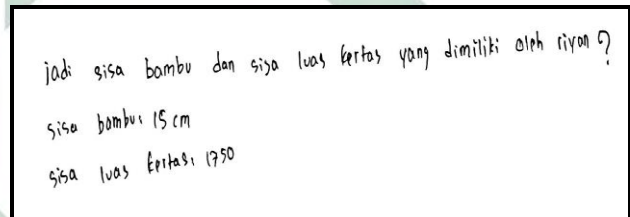 jadi sisa bambu dan sisa luas kertas yang dimiliki oleh riyan ?
sisa bambu: 15 cm
sisa luas kertas: 1750